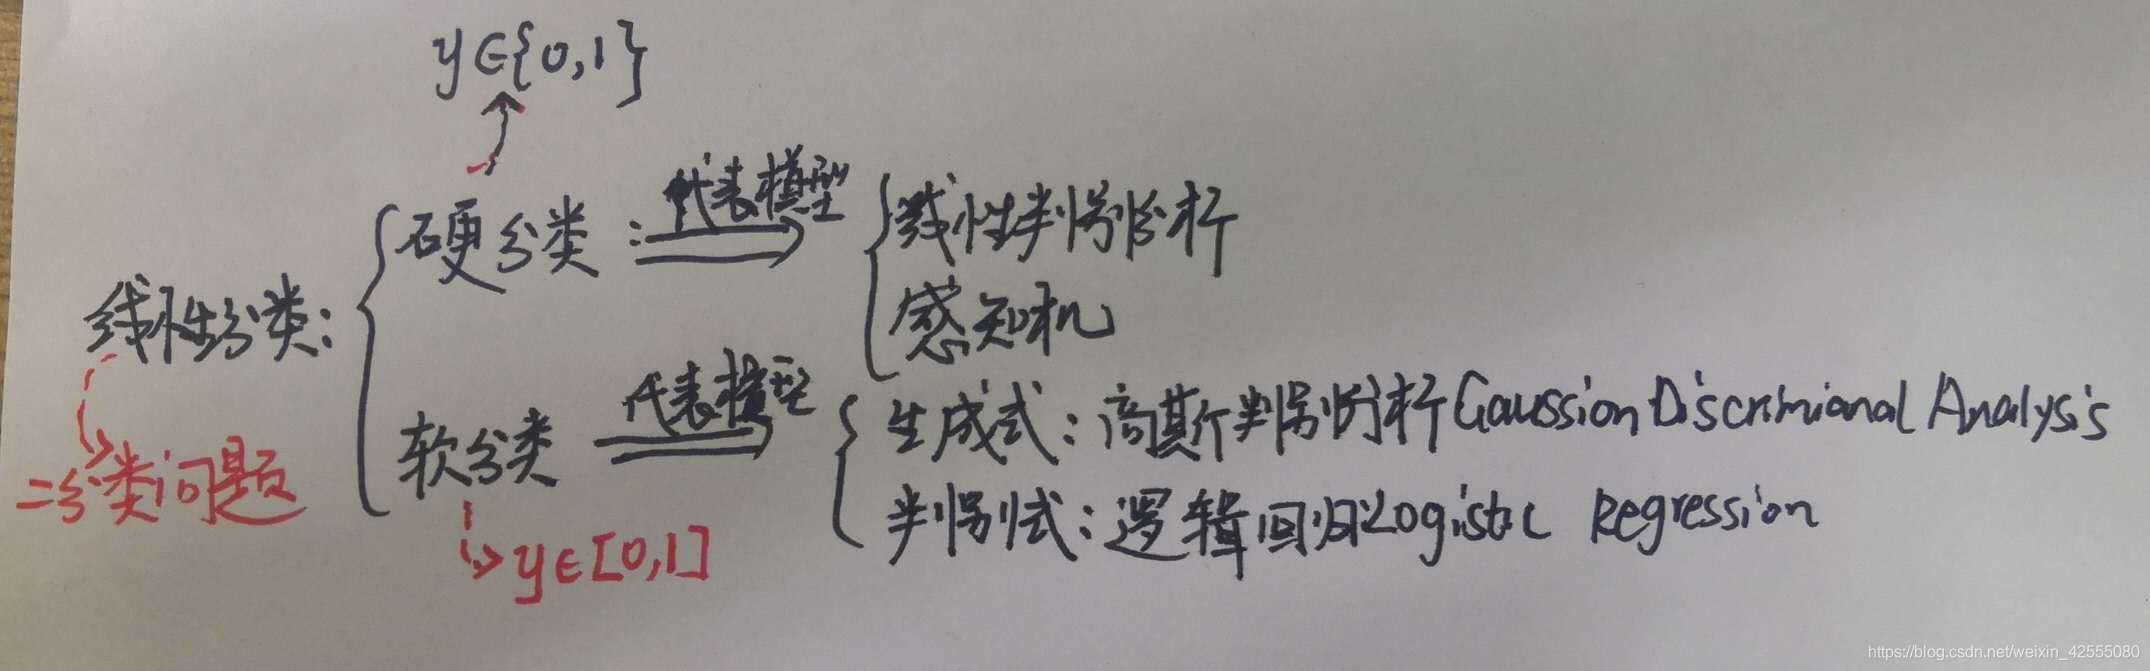 y∈{0,1}
硬分类: 代表模型 线性判别分析
感知机
线性分类:
二分类问题
软分类 代表模型 生成式: 高斯判别分析 Gaussion Discrimianal Analysis
判别式: 逻辑回归 Logistic Regression
y∈[0,1]
https://blog.csdn.net/weixin_42555080